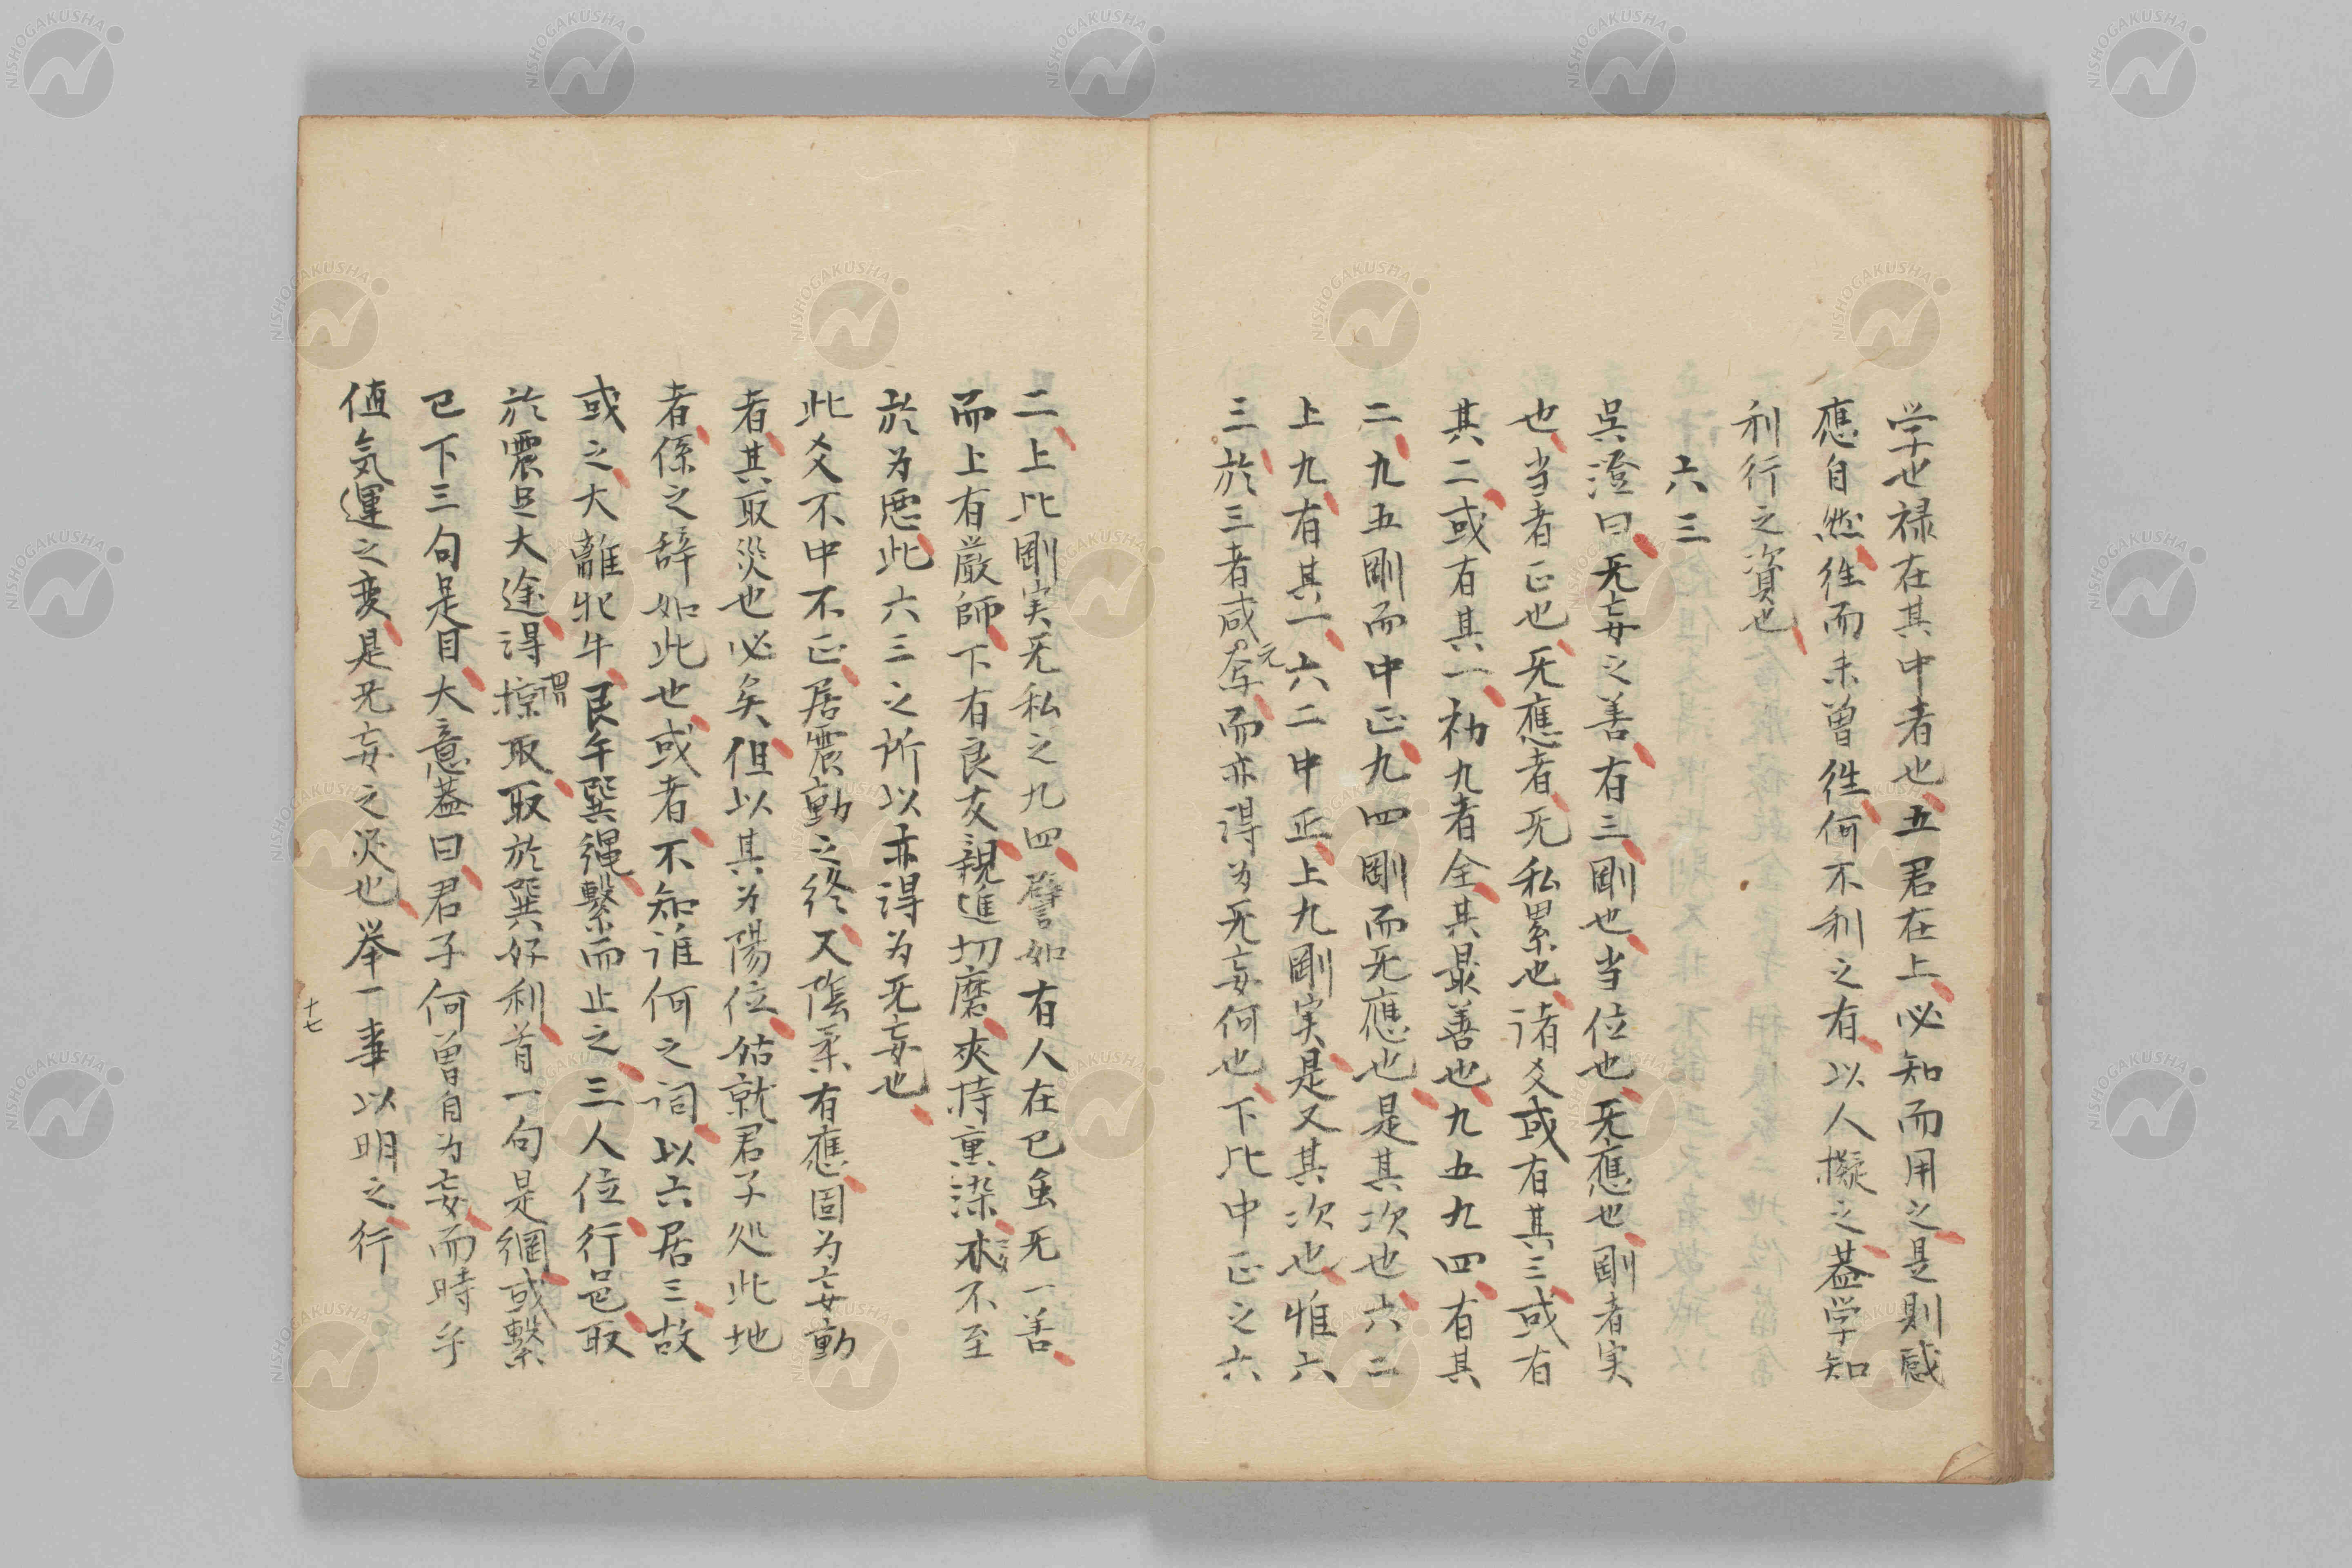 学也禄在其中者也五君在上必知而用之是則感
應自然徃而未曽徃何不利之有以人擬之葢学知
利行之資也
六三
吳澄曰无妄之善有三剛也当位也无應也剛者実
也当者正也无應者无私累也諸爻或有其三或有
其二或有其一初九者全其最善也九五九四有其
二九五剛而中正九四剛而无應也是其次也六二
上九有其一六二中正上九剛実是又其次也惟六
三於三者咸无焉而亦得为无妄何也下比中正之六
二上比剛実无私之九四譬如有人在已虽无一善
而上有厳師下有良友親進切磨夾持熏染亦不至
於为悪此六三之所以亦得为无妄也
此爻不中不正居震動之終又陰柔有應固为妄動
者其取災也必矣但以其为陽位姑就君子処此地
者係之辞如此也或者不知谁何之词以六居三故
或之大離牝牛艮午巽縄繋而止之三人位行邑取
於震足大途得掠取取於巽好利首一句是綱或繋
已下三句是目大意葢曰君子何曽自为妄而時乎
值気運之変是无妄之災也举一事以明之行
十七